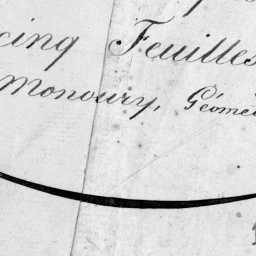 cinq Feuilles
Monoury, Géomé